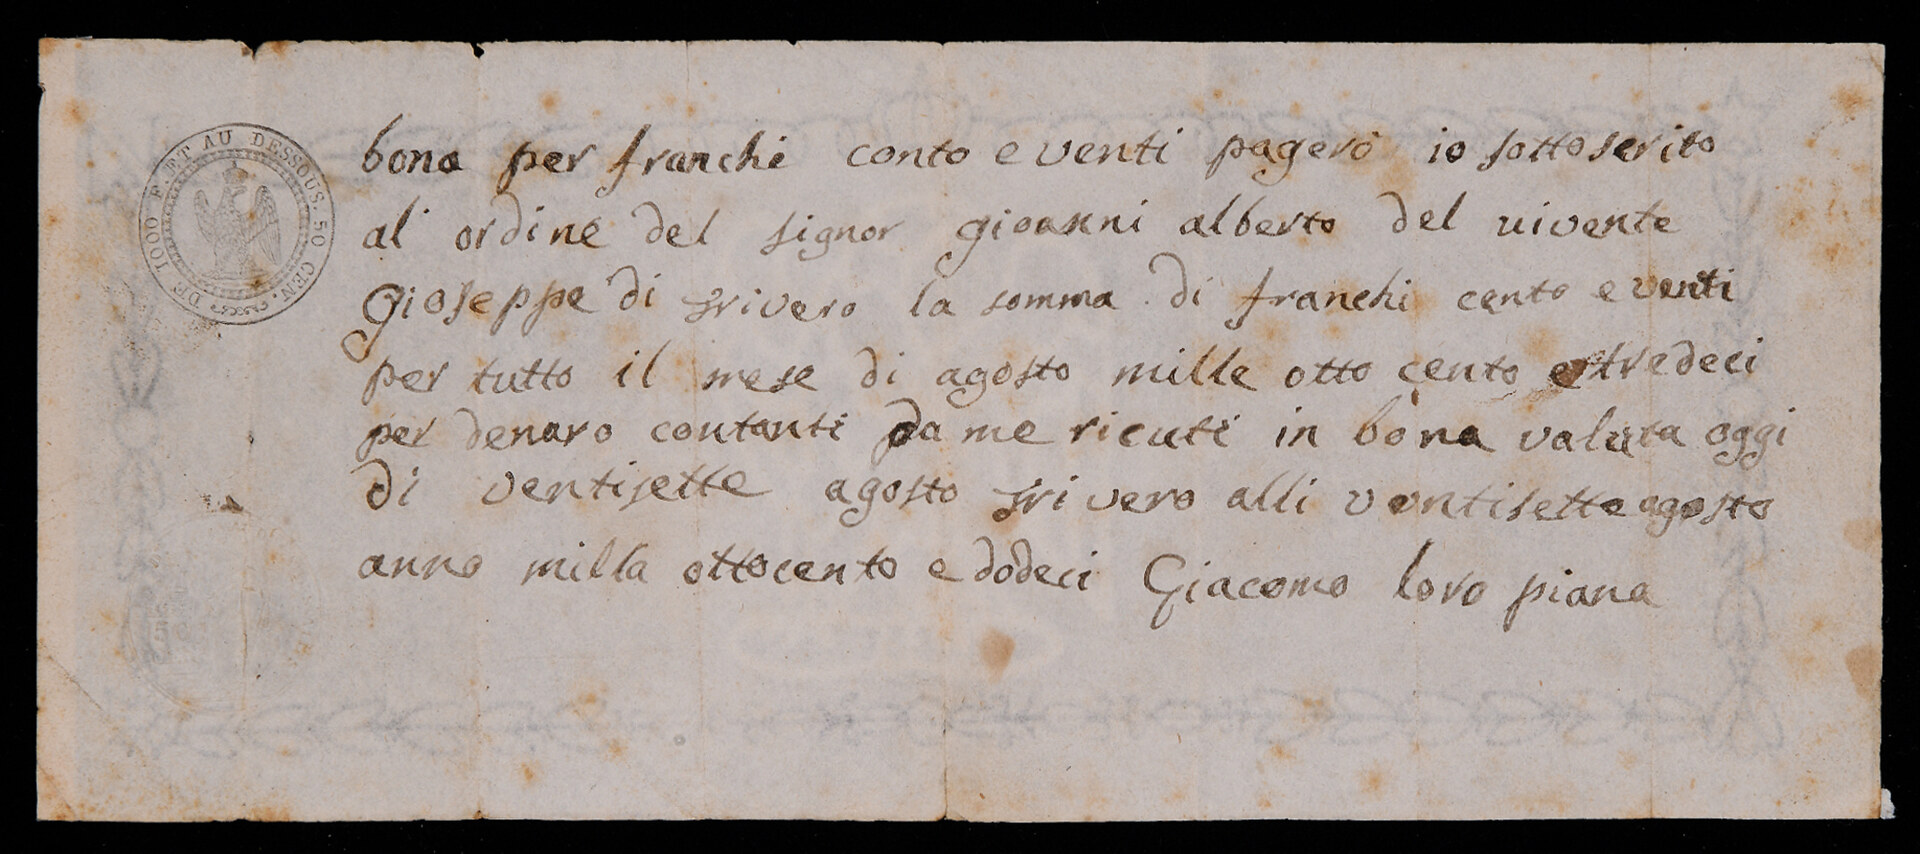 DE 1000 F. ET AU DESSOUS. 50 CEN.
bona per franchi conto e venti pagerò io sottoscrito
al ordine del signor gioanni alberto del vivente
Gioseppe di trivero la somma di franchi cento e venti
per tutto il mese di agosto mille otto cento e tredeci
per denaro contanti da me riceuti in bona valuta oggi
di ventisette agosto trivero alli ventisette agosto
anno milla ottocento e dodeci Giacomo loro piana